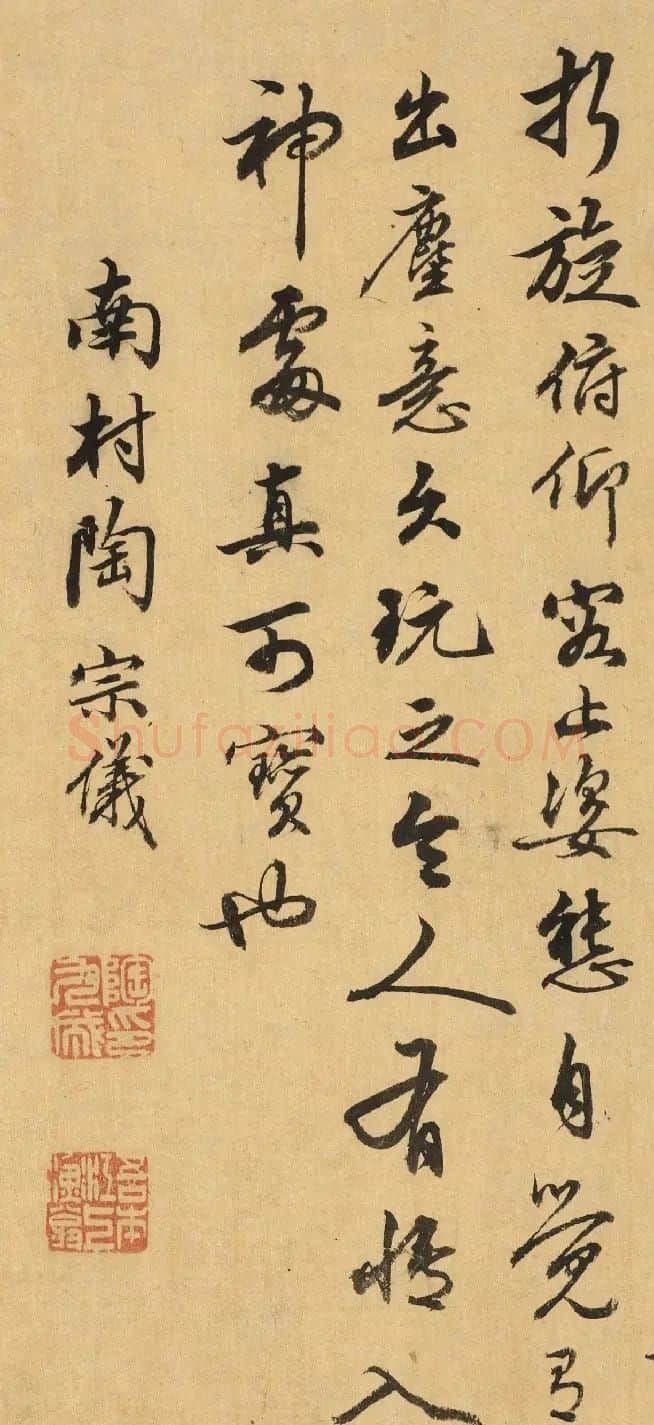 折旋俯仰容止姿態自覺有
出塵意久玩之令人有悟入
神處真可寶也
南村陶宗儀
Shufaziliao.COM